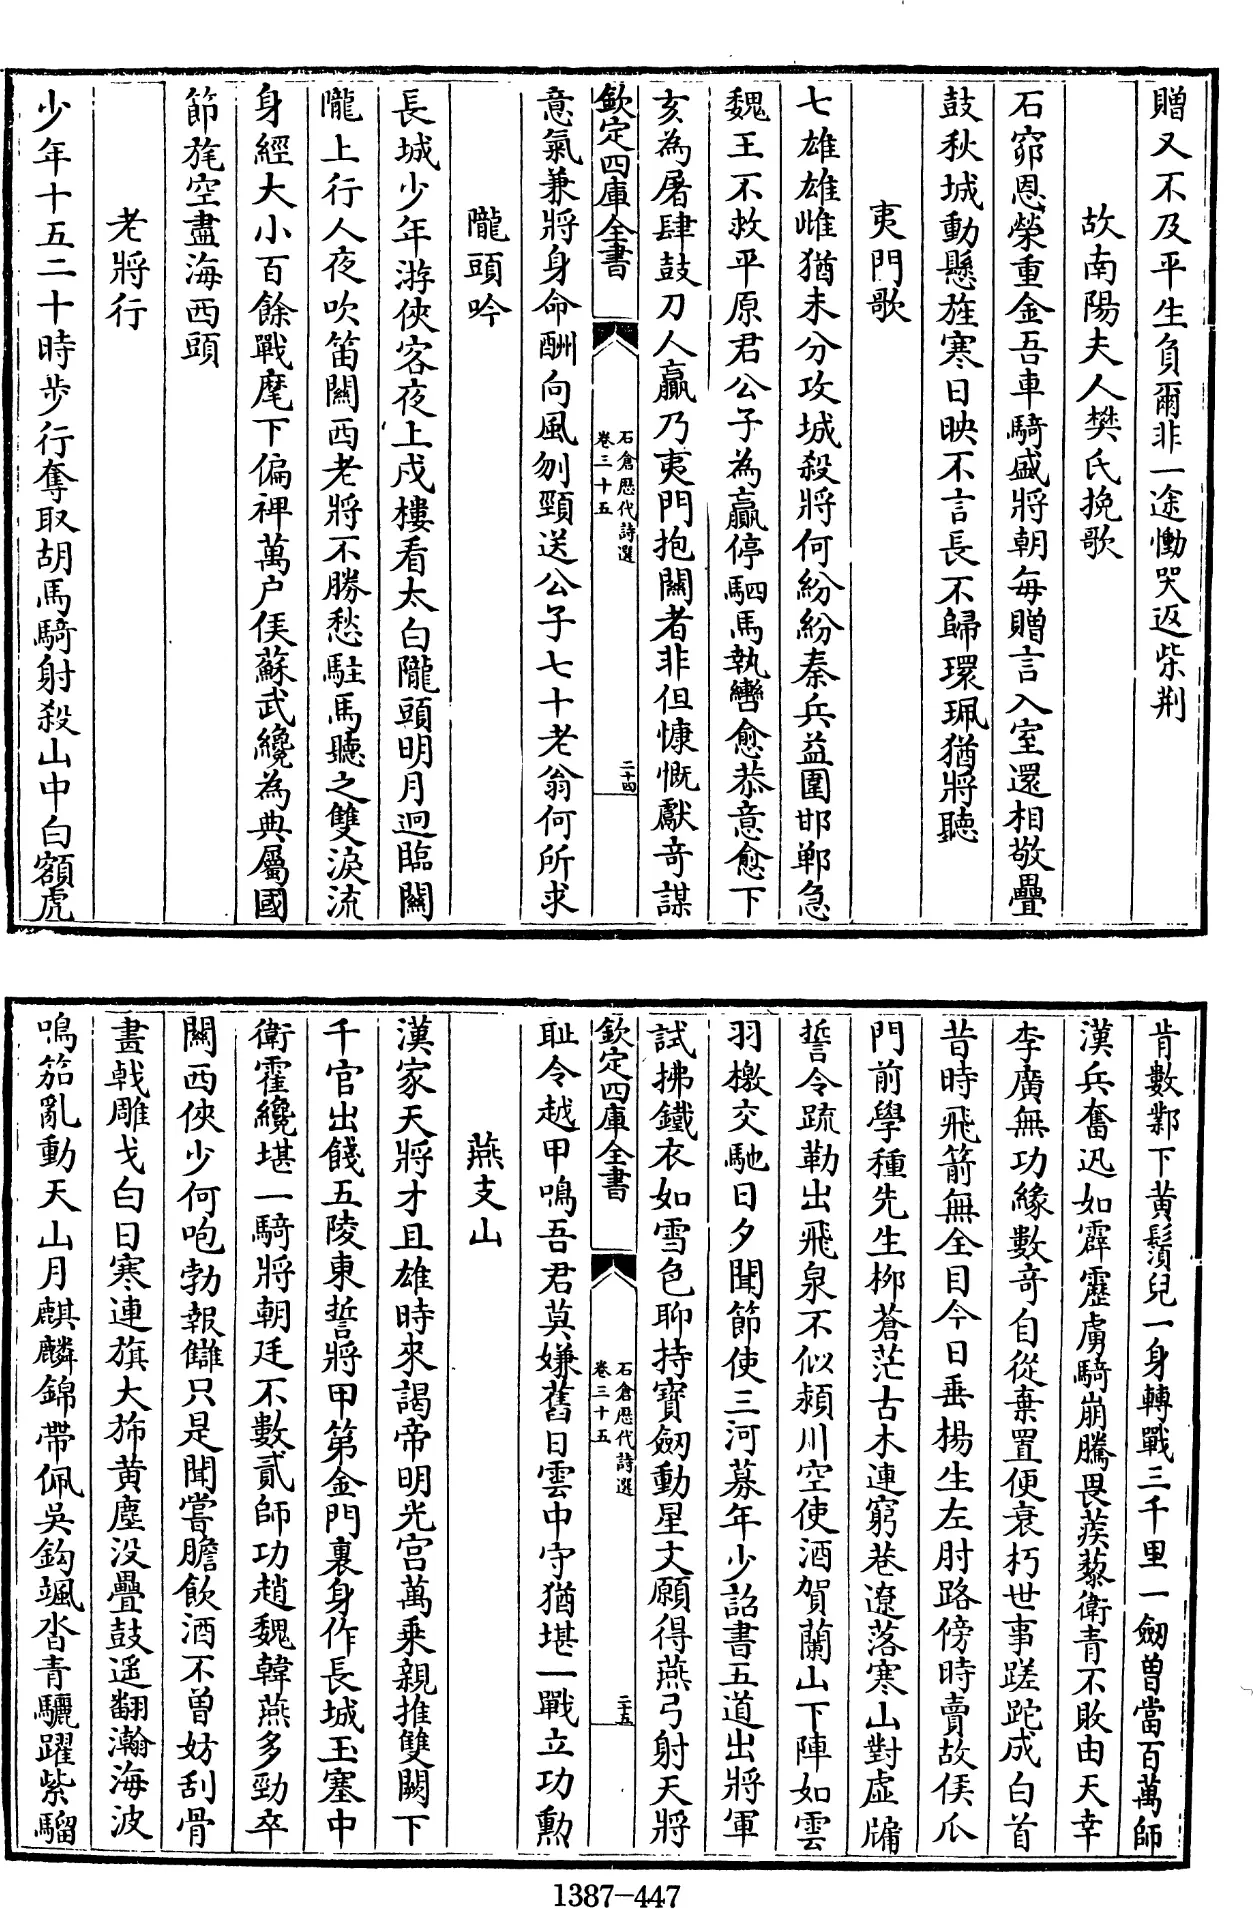 贈又不及平生負爾非一途慟哭返柴荆
故南陽夫人樊氏挽歌
石窌恩榮重金吾車騎盛將朝每贈言入室還相敬疊
鼓秋城動懸旌寒日映不言長不歸環珮猶將聽
夷門歌
七雄雄雌猶未分攻城殺將何紛紛秦兵益圍邯鄲急
魏王不救平原君公子為嬴停駟馬執轡愈恭意愈下
亥為屠肆鼓刀人嬴乃夷門抱關者非但慷慨獻奇謀
欽定四庫全書
石倉歷代詩選
卷三十五
二十四
意氣兼將身命酬向風刎頸送公子七十老翁何所求
隴頭吟
長城少年游俠客夜上戍樓看太白隴頭明月迥臨關
隴上行人夜吹笛關西老將不勝愁駐馬聽之雙淚流
身經大小百餘戰麾下偏裨萬户侯蘇武纔為典屬國
節旄空盡海西頭
老將行
少年十五二十時步行奪取胡馬騎射殺山中白額虎
肯數鄴下黃鬚兒一身轉戰三千里一劒曽當百萬師
漢兵奮迅如霹靂虜騎崩騰畏蒺藜衛青不敗由天幸
李廣無功緣數奇自從棄置便衰朽世事蹉跎成白首
昔時飛箭無全目今日垂楊生左肘路傍時賣故侯瓜
門前學種先生栁蒼茫古木連窮巷遼落寒山對虛牖
誓令疏勒出飛泉不似潁川空使酒賀蘭山下陣如雲
羽檄交馳日夕聞節使三河募年少詔書五道出將軍
試拂鐵衣如雪色聊持寶劒動星文願得燕弓射天將
欽定四庫全書
石倉歷代詩選
卷三十五
二十五
耻令越甲鳴吾君莫嫌舊日雲中守猶堪一戰立功勲
燕支山
漢家天將才且雄時來謁帝明光宫萬乘親推雙闕下
千官出餞五陵東誓將甲第金門裏身作長城玉塞中
衛霍纔堪一騎將朝廷不數貳師功趙魏韓燕多勁卒
關西俠少何咆勃報讎只是聞嘗膽飲酒不曽妨刮骨
畫戟雕戈白日寒連旗大斾黄塵没疊鼓遥翻瀚海波
鳴笳亂動天山月麒麟錦帶佩吳鈎颯沓青驪躍紫騮
1387-447